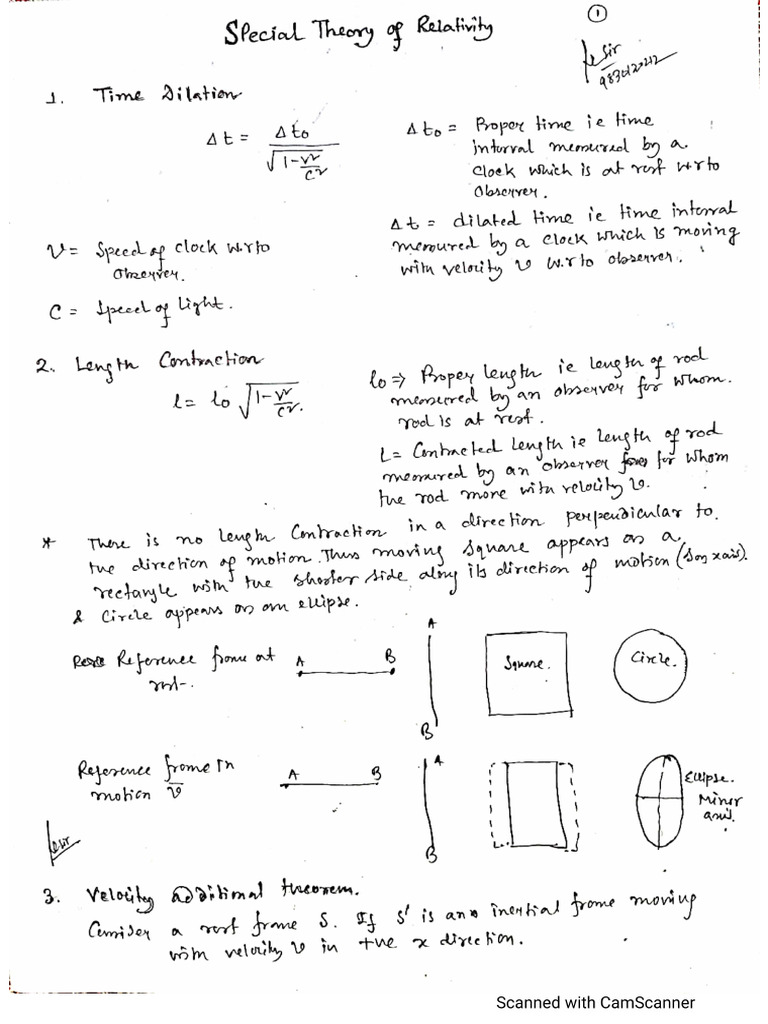 Special Theory of Relativity
①
1. Time Dilation
Δt = Δt₀ / √(1 - v²/c²)
Δt₀ = Proper time ie time
interval measured by a
clock which is at rest w.r to
observer.
Δt = dilated time ie time interval
measured by a clock which is moving
with velocity v w.r to observer.
v = Speed of clock w.r to
observer.
c = Speed of light.
2. Length Contraction
l = l₀ √(1 - v²/c²)
l₀ ⇒ Proper length ie length of rod
measured by an observer for whom
rod is at rest.
L = Contracted length ie length of rod
measured by an observer for whom
the rod move with velocity v.
* There is no length Contraction in a direction perpendicular to
the direction of motion. Thus moving square appears as a
rectangle with the shorter side along its direction of motion (say xaxis).
& Circle appears as an ellipse.
Reference frame at
rest-.
A B
A
B
Square.
Circle.
Reference frame in
motion v
A B
A
B
Ellipse.
Minor
axis.
3. Velocity additional theorem.
Consider a rest frame S. If S' is an inertial frame moving
with velocity v in +ve x direction.
Scanned with CamScanner